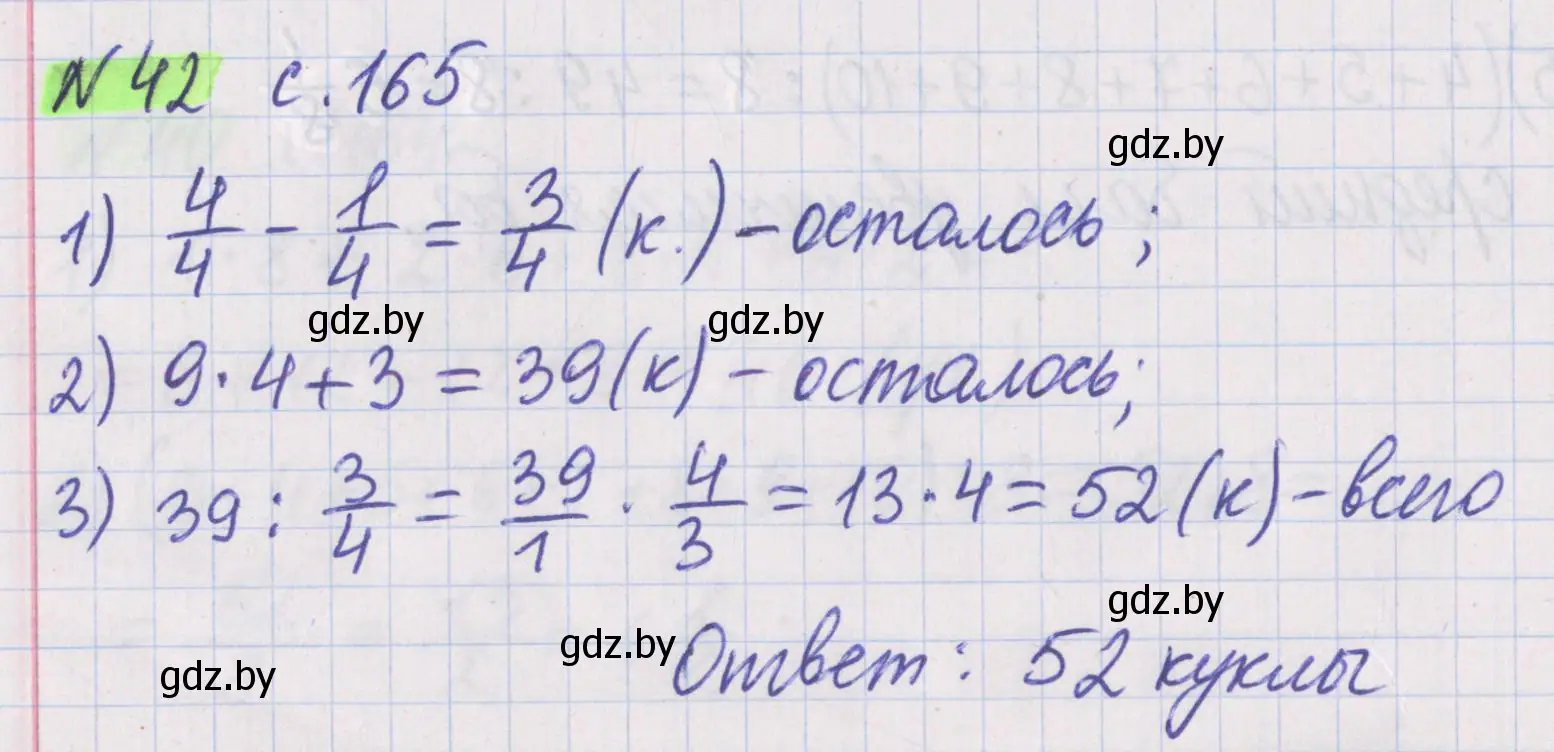 № 42 с. 165
gdz.by
1) 4/4 - 1/4 = 3/4 (к.) - осталось;
gdz.by gdz.by
2) 9·4+3 = 39(к) - осталось;
3) 39 : 3/4 = 39/1 · 4/3 = 13·4 = 52 (к) - всего
gdz.by
gdz.by Ответ: 52 куклы
gdz.by